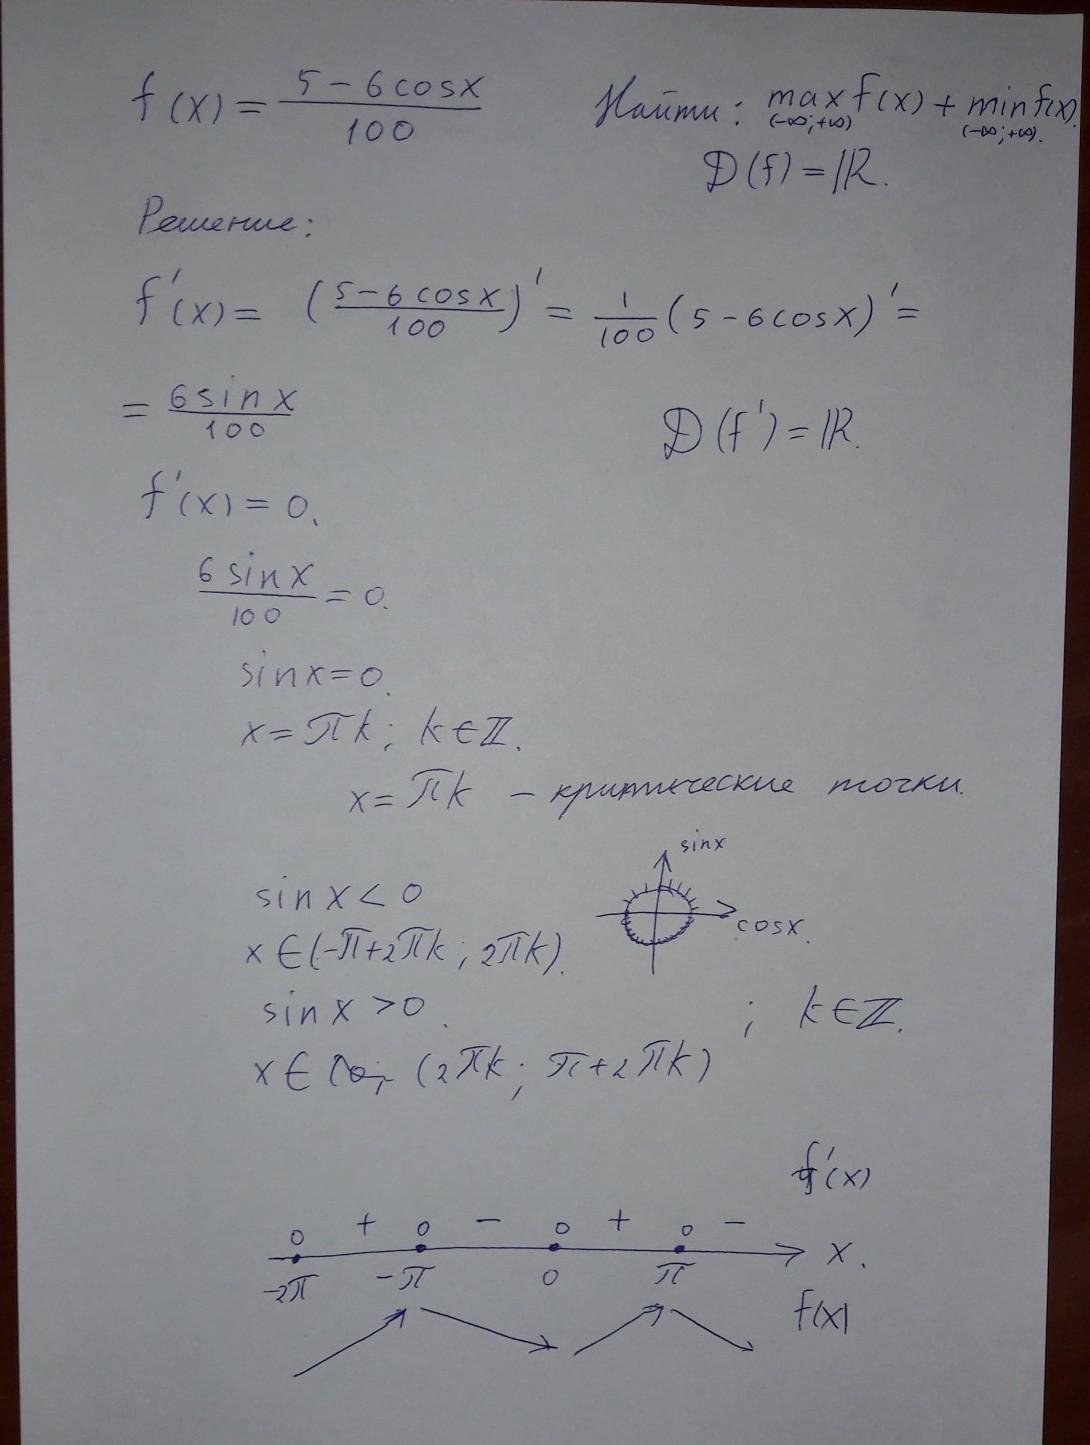 f(x) = (5 - 6cosx)/100 Найти: max f(x) + min f(x).
(-∞; +∞) (-∞; +∞).
D(f) = ℝ.
Решение:
f'(x) = ((5 - 6cosx)/100)' = 1/100 (5 - 6cosx)' =
= 6sinx/100 D(f') = ℝ.
f'(x) = 0.
6sinx/100 = 0.
sinx = 0.
x = πk; k ∈ ℤ.
x = πk – критические точки.
sinx
sinx < 0
cosx.
x ∈ (-π+2πk; 2πk).
sinx > 0. ; k ∈ ℤ.
x ∈ (2πk; π+2πk)
f'(x)
0 + 0 - 0 + 0 -
x.
-2π -π 0 π
f(x)